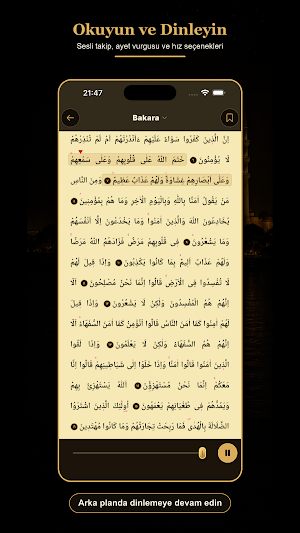 Okuyun ve Dinleyin
Sesli takip, ayet vurgusu ve hız seçenekleri
21:47
Bakara
اِنَّ الَّذٖينَ كَفَرُوا سَوَٓاءٌ عَلَيْهِمْ ءَاَنْذَرْتَهُمْ اَمْ لَمْ تُنْذِرْهُمْ
لَا يُؤْمِنُونَ خَتَمَ اللّٰهُ عَلٰى قُلُوبِهِمْ وَعَلٰى سَمْعِهِمْ
وَعَلٰٓى اَبْصَارِهِمْ غِشَاوَةٌ وَلَهُمْ عَذَابٌ عَظٖيمٌ وَمِنَ النَّاسِ
مَنْ يَقُولُ اٰمَنَّا بِاللّٰهِ وَبِالْيَوْمِ الْاٰخِرِ وَمَا هُمْ بِمُؤْمِنٖينَ
يُخَادِعُونَ اللّٰهَ وَالَّذٖينَ اٰمَنُوا وَمَا يَخْدَعُونَ اِلَّٓا اَنْفُسَهُمْ
وَمَا يَشْعُرُونَ فٖى قُلُوبِهِمْ مَرَضٌ فَزَادَهُمُ اللّٰهُ مَرَضًا
وَلَهُمْ عَذَابٌ اَلٖيمٌ بِمَا كَانُوا يَكْذِبُونَ وَاِذَا قٖيلَ لَهُمْ
لَا تُفْسِدُوا فِى الْاَرْضِ قَالُٓوا اِنَّمَا نَحْنُ مُصْلِحُونَ اَلَٓا
اِنَّهُمْ هُمُ الْمُفْسِدُونَ وَلٰكِنْ لَا يَشْعُرُونَ وَاِذَا قٖيلَ
لَهُمْ اٰمِنُوا كَمَٓا اٰمَنَ النَّاسُ قَالُٓوا اَنُؤْمِنُ كَمَٓا اٰمَنَ السُّفَهَٓاءُ اَلَٓا
اِنَّهُمْ هُمُ السُّفَهَٓاءُ وَلٰكِنْ لَا يَعْلَمُونَ وَاِذَا لَقُوا
الَّذٖينَ اٰمَنُوا قَالُٓوا اٰمَنَّا وَاِذَا خَلَوْا اِلٰى شَيَاطٖينِهِمْ قَالُٓوا اِنَّا
مَعَكُمْ اِنَّمَا نَحْنُ مُسْتَهْزِؤُنَ اَللّٰهُ يَسْتَهْزِئُ بِهِمْ
وَيَمُدُّهُمْ فٖى طُغْيَانِهِمْ يَعْمَهُونَ اُو۬لٰٓئِكَ الَّذٖينَ اشْتَرَوُا
الضَّلَالَةَ بِالْهُدٰى فَمَا رَبِحَتْ تِجَارَتُهُمْ وَمَا كَانُوا مُهْتَدٖينَ
Arka planda dinlemeye devam edin